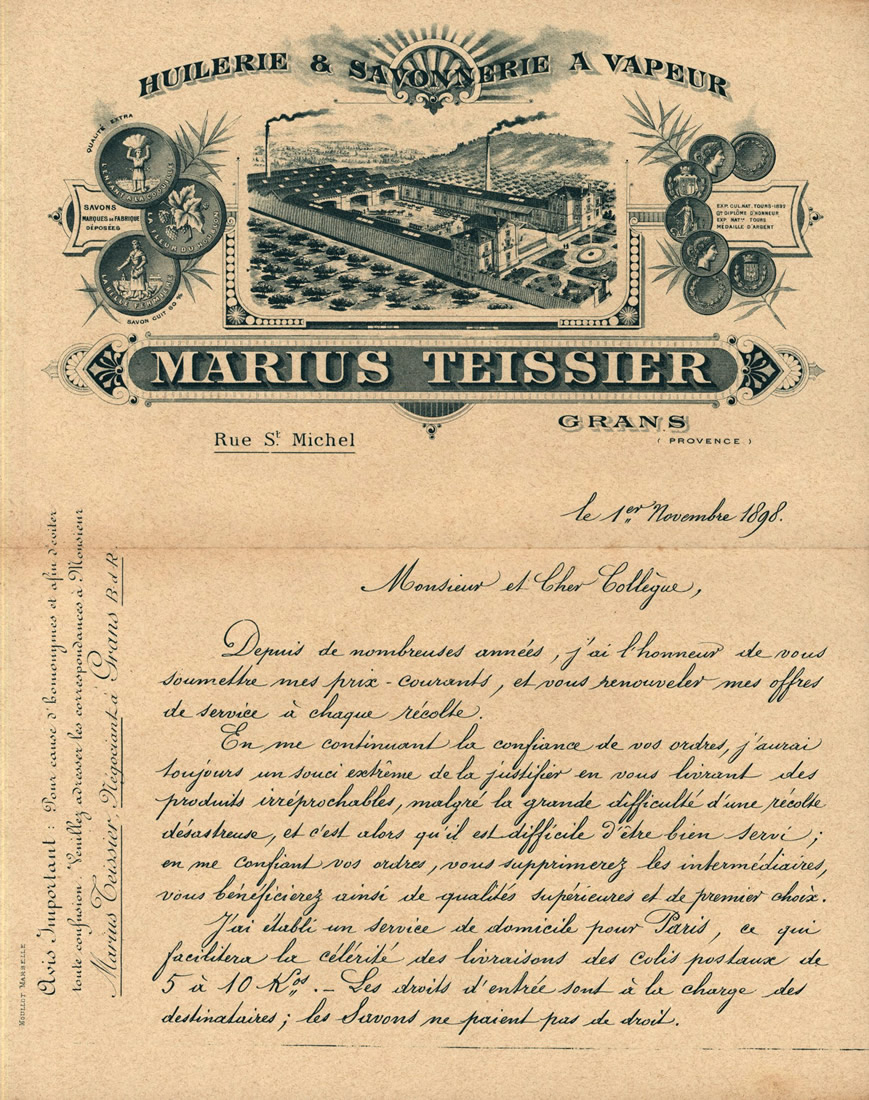 HUILERIE & SAVONNERIE A VAPEUR
QUALITÉ EXTRA
L'ENFANT A LA COQUILLE
SAVONS
MARQUES DE FABRIQUE
DÉPOSÉES
LA FLEUR DU
LA BELLE FERMIÈRE
SAVON CUIT 60 %
EXP. CUL. NAT. TOURS 1892
Gd DIPLÔME D'HONNEUR
EXP. NATle TOURS
MÉDAILLE D'ARGENT
MARIUS TEISSIER
GRANS
( PROVENCE )
Rue St Michel
le 1er Novembre 1898.
Monsieur et Cher Collègue,
Depuis de nombreuses années, j'ai l'honneur de vous
soumettre mes prix-courants, et vous renouveler mes offres
de service à chaque récolte.
En me continuant la confiance de vos ordres, j'aurai
toujours un souci extrême de la justifier en vous livrant des
produits irréprochables, malgré la grande difficulté d'une récolte
désastreuse, et c'est alors qu'il est difficile d'être bien servi ;
en me confiant vos ordres, vous supprimerez les intermédiaires,
vous bénéficierez ainsi de qualités supérieures et de premier choix.
J'ai établi un service de domicile pour Paris, ce qui
facilitera la célérité des livraisons des colis postaux de
5 à 10 Kos. — Les droits d'entrée sont à la charge des
destinataires ; les Savons ne paient pas de droit.
Avis Important : Pour cause d'homonymes et afin d'éviter
toute confusion Veuillez adresser les correspondances à Monsieur
Marius Teissier, Négociant à Grans B. d R.
MOULLOT MARSEILLE